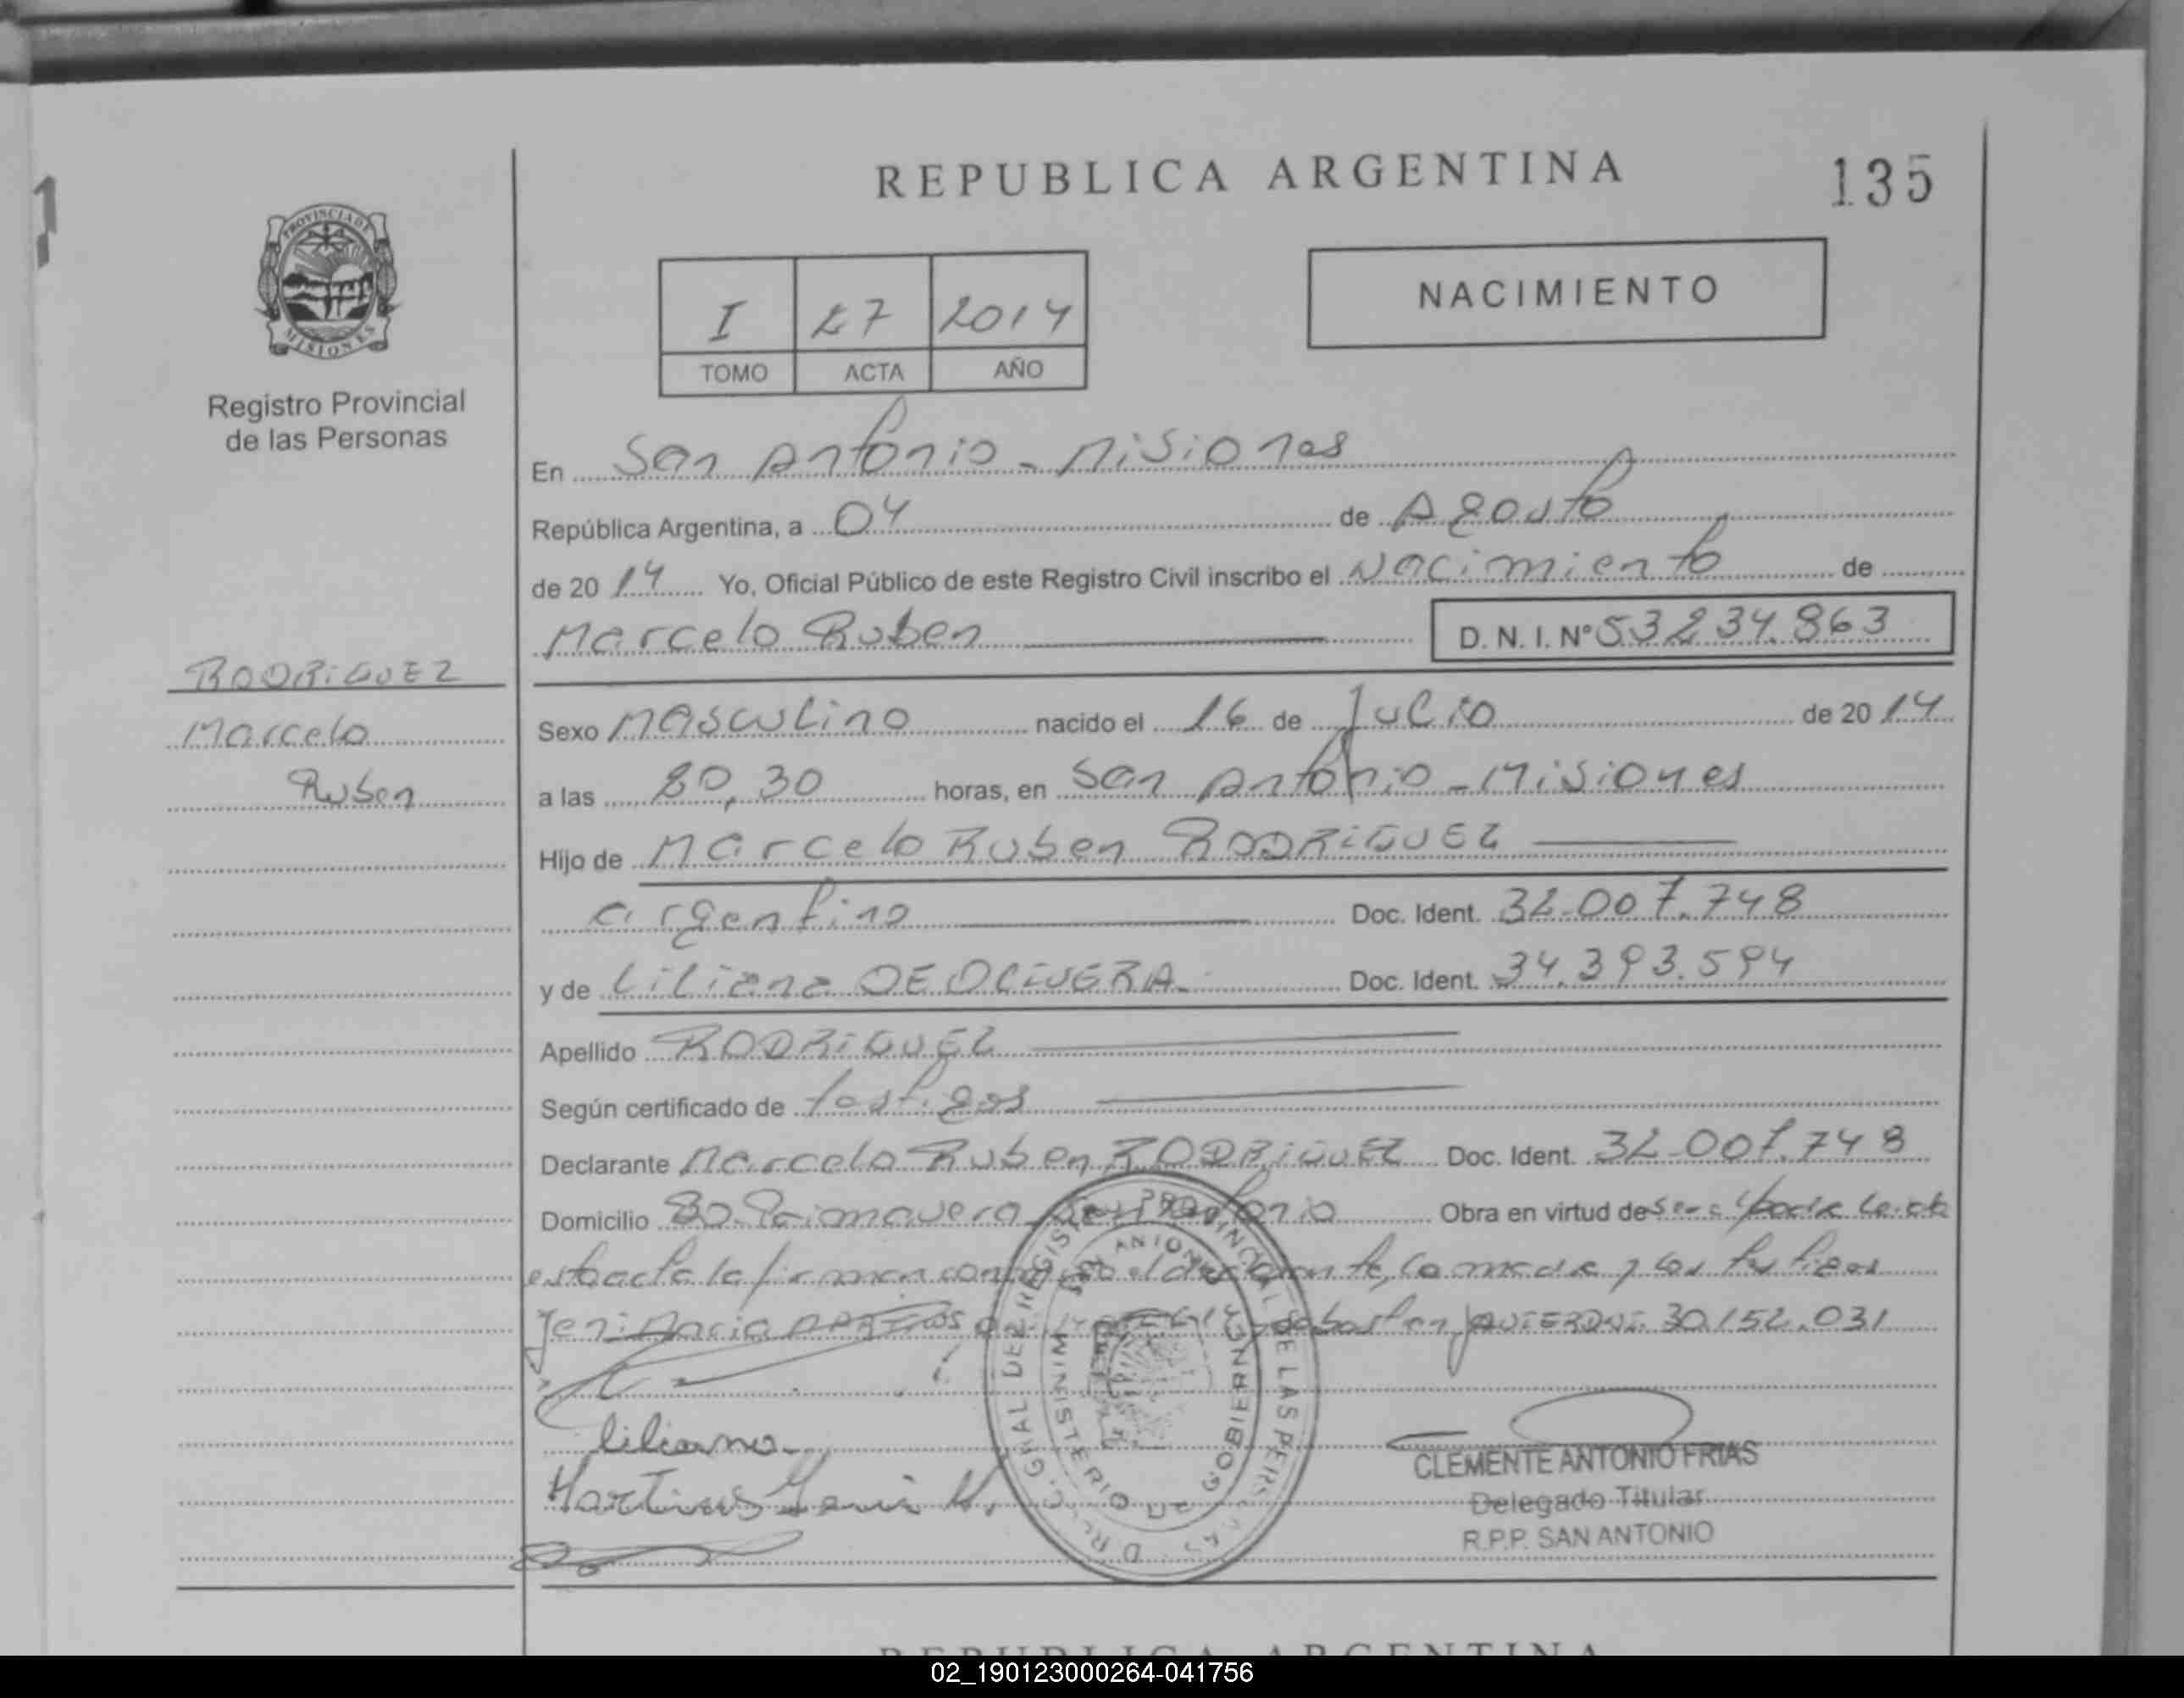 REPUBLICA ARGENTINA
135
PROVINCIA DE
MISIONES
Registro Provincial
de las Personas
I 27 2014
TOMO ACTA AÑO
NACIMIENTO
En San Antonio - Misiones
República Argentina, a 04 de Agosto
de 20 14 Yo, Oficial Público de este Registro Civil inscribo el Nacimiento de
Marcelo Ruben D. N. I. Nº 53234.863
RODRIGUEZ
Marcelo
Ruben
Sexo Masculino nacido el 16 de Julio de 20 14
a las 20,30 horas, en San Antonio - Misiones
Hijo de Marcelo Ruben RODRIGUEZ
argentino Doc. Ident. 32.007.748
y de Liliana DE OLIVERA Doc. Ident. 34.393.594
Apellido RODRIGUEZ
Según certificado de testigos
Declarante Marcelo Ruben RODRIGUEZ Doc. Ident. 32.007.748
Domicilio Bº Primavera San Antonio Obra en virtud de
la firman conmigo el declarante, la madre y los testigos
30.152.031
liliana
CLEMENTE ANTONIO FRIAS
Delegado Titular
R.P.P. SAN ANTONIO
MINISTERIO DE GOBIERNO
REPUBLICA ARGENTINA
02_190123000264-041756